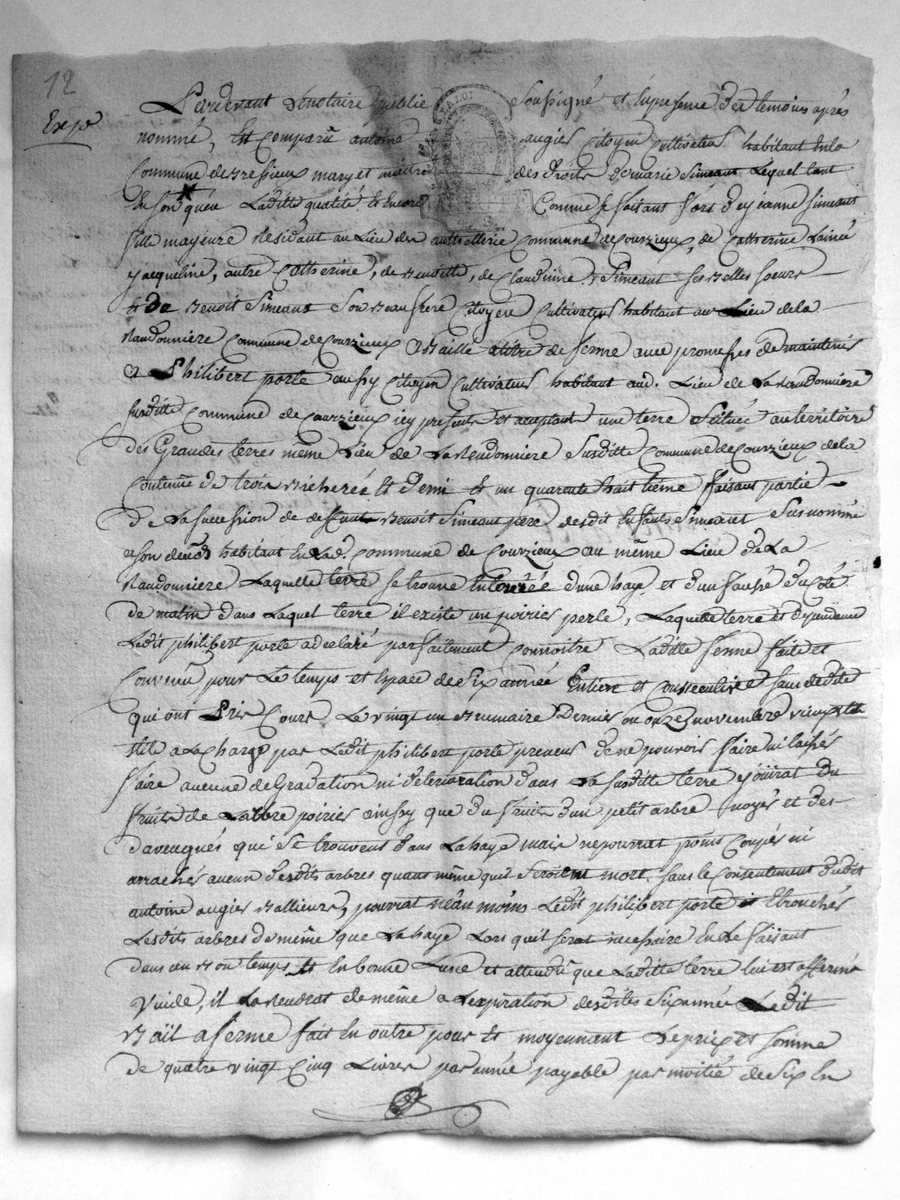 12
Expé
Pardevant Le notaire public Soussigné et En presence des temoins après
nommé, Est Comparu antoine augier Citoyen Cultivateur habitant En la
Commune de Bressieux mary et maitre des droits de marie Simeant Lequel tant
En son que Laditte qualité, Et Encore Comme se faisant fors de jeanne Simeant
fille majeure Residant au Lieu de Commune de Courzieux, de Catherine Lainée
jacqueline, autre Catherine, de Benoitte, de Claudinne Simeant ses Belles soeurs
Et de Benoit Simeant Son Beau frere Citoyen Cultivateur habitant au Lieu de la
Randonnière Commune de Courzieux a Baillé a titre de ferme avec promesses de maintenir
a Philibert porte aussy Citoyen Cultivateur habitant aud. Lieu de La Randonnière
susditte Commune de Courzieux icy present et aceptant une terre Scituée au territoire
des Grandes terres même Lieu de La Randonnière Susditte Commune de Courzieux de la
Contenue de trois Bicherée Et demi Et un quarente huit tième faisant partie
de La succession de deffunt Benoit Simeant pere desdit Enfants Simeant Susnommé
a son deces habitant En Lad. Commune de Courzieux au même Lieu de La
Randonniere Laquelle terre se trouve Entourée d'une haye et d'un faussé du Coté
de matin dans Laquel terre il existe un poirier perle, Laquelle terre et dependance
Ledit philibert porte a declaré parfaitement Connoitre Laditte ferme faite et
Convenu pour Le temps et Espace de Six année Entiere et Conssecutive Sans dedite
qui ont Pris Cours Le vingt un Brumaire Dernier ou onze novembre vieux
stile a La Charge par Ledit philibert porte preneur de ne pouvoir faire ni laisser
faire aucune deGradation ni deterioration dans La susditte terre, jouirat du
fruits de Larbre poirier ainssy que du fruit d'un petit arbre noyer et des
qui Se trouvent dans La haye mais ne pourrat point Couper ni
arracher aucun desdits arbres quant même qu'il Seroient mort, sans le Consentement dudit
antoine augier Bailleur, pourrat néan moins Ledit philibert porte Ebroucher
Lesdits arbres de même que La haye Lors quil serat necesaire En Le faisant
dans un Bon temps Et En bonne Lune et attendu que Laditte terre lui est afermé
Vuide, il La Rendrat de même a Lexpiration desdittes Six année Ledit
Bail a ferme fait En outre pour Et moyennant Le prix et somme
de quatre vingt Cinq Livres par année payable par moitié de Six En